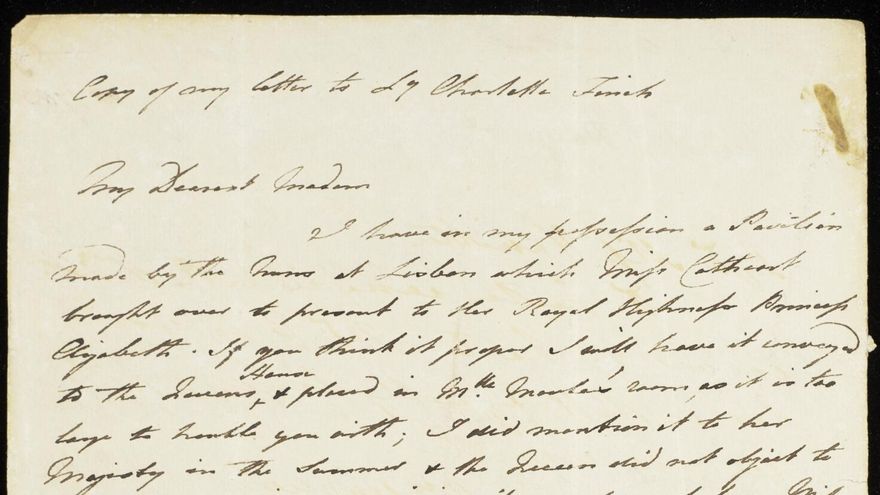 Copy of my letter to Ly Charlotte Finch
My Dearest Madam
I have in my possession a Pavilion
made by the Nuns at Lisbon which Miss Cathcart
brought over to present to Her Royal Highness Princess
Elizabeth. If you think it proper I will have it conveyed
House
to the Queens, & placed in Mlle Moula's room, as it is too
large to trouble you with; I did mention it to her
Majesty in the Summer & the Queen did not object to